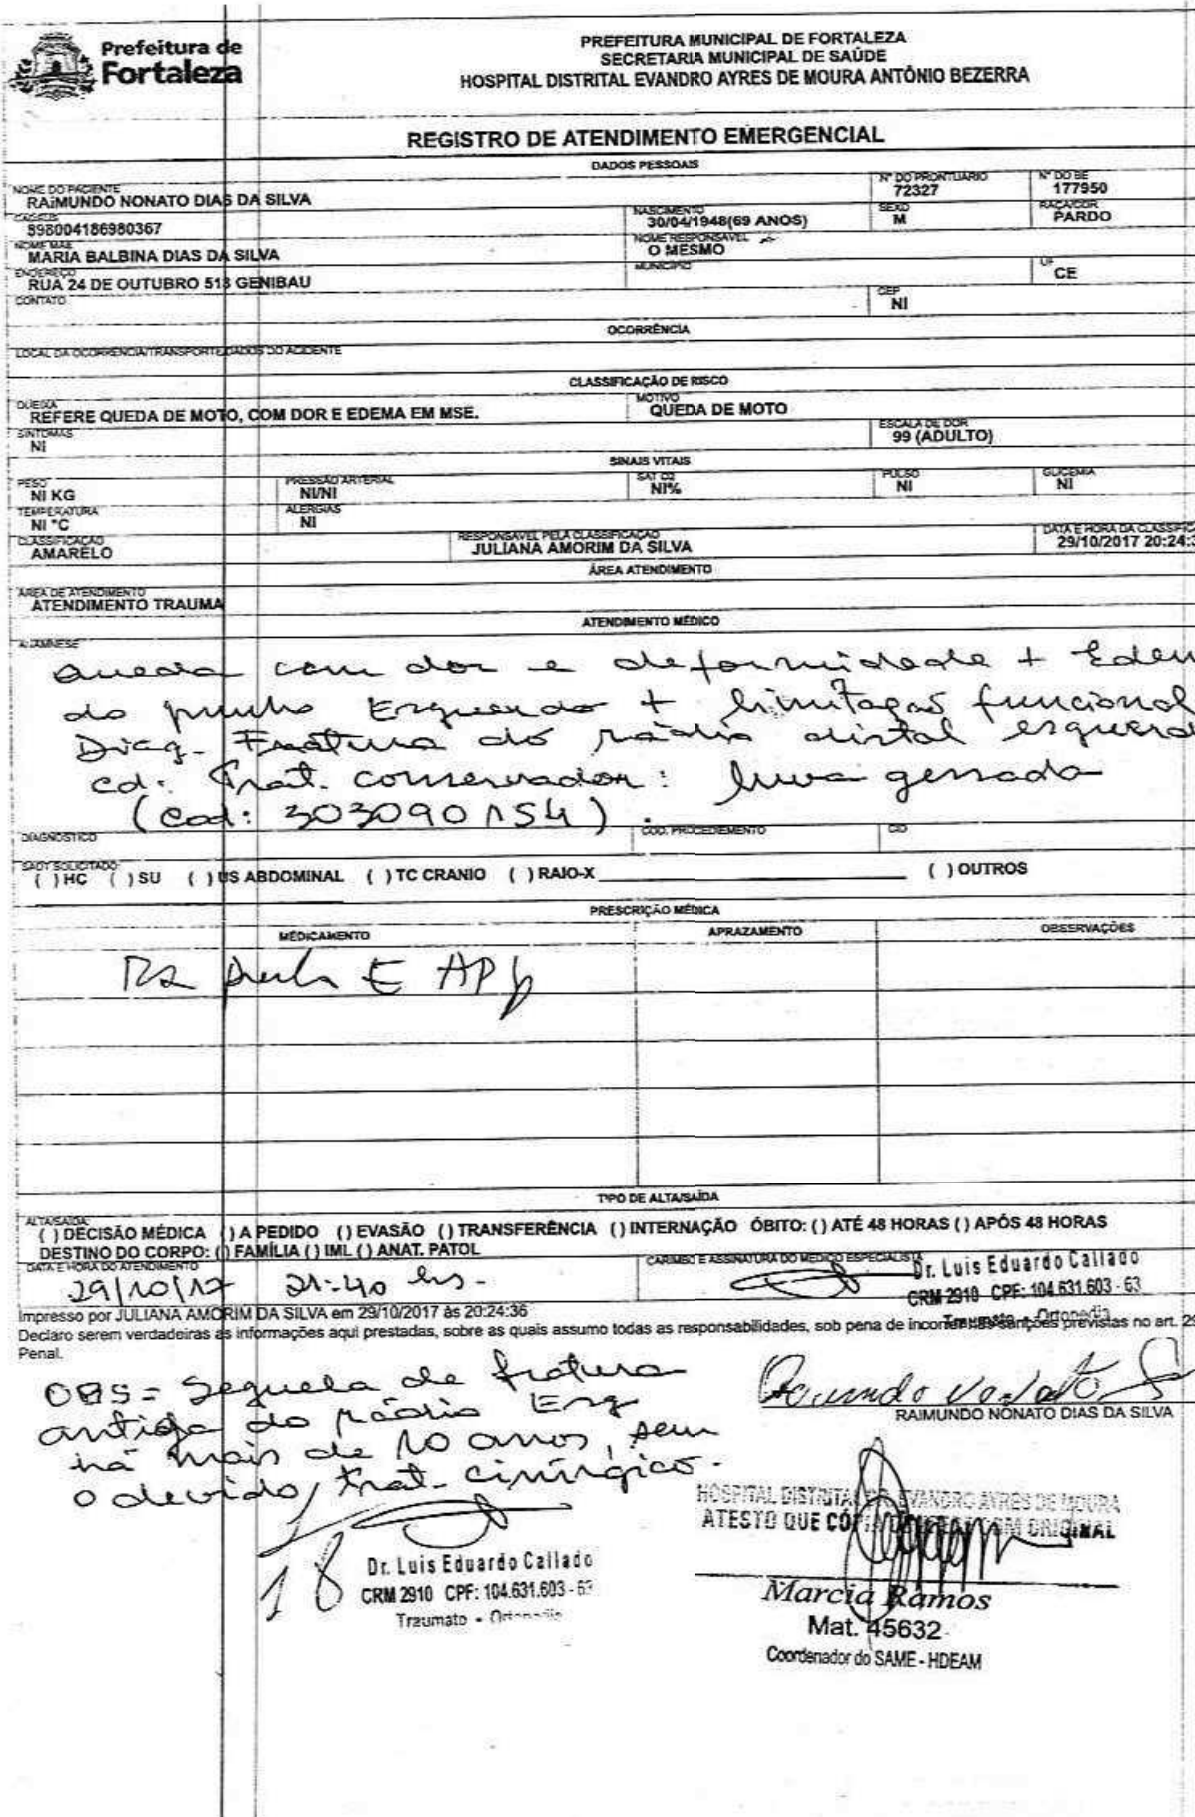 Prefeitura de
Fortaleza
PREFEITURA MUNICIPAL DE FORTALEZA
SECRETARIA MUNICIPAL DE SAÚDE
HOSPITAL DISTRITAL EVANDRO AYRES DE MOURA ANTÔNIO BEZERRA
REGISTRO DE ATENDIMENTO EMERGENCIAL
DADOS PESSOAIS
NOME DO PACIENTE Nº DO PRONTUÁRIO Nº DO BE
RAIMUNDO NONATO DIAS DA SILVA 72327 177950
NASCIMENTO SEXO RAÇA/COR
898004186980367 30/04/1948(69 ANOS) M PARDO
NOME MAE NOME RESPONSAVEL
MARIA BALBINA DIAS DA SILVA O MESMO
ENDEREÇO MUNICIPIO UF
RUA 24 DE OUTUBRO 518 GENIBAU CE
CONTATO CEP
NI
OCORRÊNCIA
LOCAL DA OCORRENCIA/TRANSPORTE/DADOS DO ACIDENTE
CLASSIFICAÇÃO DE RISCO
QUEIXA MOTIVO
REFERE QUEDA DE MOTO, COM DOR E EDEMA EM MSE. QUEDA DE MOTO
SINTOMAS ESCALA DE DOR
NI 99 (ADULTO)
SINAIS VITAIS
PESO PRESSÃO ARTERIAL SAT O2 PULSO GLICEMIA
NI KG NI/NI NI% NI NI
TEMPERATURA ALERGIAS
NI °C NI
CLASSIFICAÇÃO RESPONSAVEL PELA CLASSIFICAÇÃO DATA E HORA DA CLASSIFICA
AMARELO JULIANA AMORIM DA SILVA 29/10/2017 20:24:3
ÁREA ATENDIMENTO
AREA DE ATENDIMENTO
ATENDIMENTO TRAUMA
ATENDIMENTO MÉDICO
ANAMNESE
Queda com dor e deformidade + Edem
do punho Esquerdo + limitação funcional
Diag- Fratura do rádio distal esquerd
cd: Trat. conservador: luva gessada
(cod: 303090154).
DIAGNOSTICO COD. PROCEDIEMENTO CID
SADT SOLICITADO
( ) HC ( ) SU ( ) US ABDOMINAL ( ) TC CRANIO ( ) RAIO-X ( ) OUTROS
PRESCRIÇÃO MÉDICA
MEDICAMENTO APRAZAMENTO OBSERVAÇÕES
Rx punho E AP
TIPO DE ALTA/SAÍDA
ALTA/SAIDA:
( ) DECISÃO MÉDICA ( ) A PEDIDO ( ) EVASÃO ( ) TRANSFERÊNCIA ( ) INTERNAÇÃO ÓBITO: ( ) ATÉ 48 HORAS ( ) APÓS 48 HORAS
DESTINO DO CORPO: ( ) FAMÍLIA ( ) IML ( ) ANAT. PATOL
DATA E HORA DO ATENDIMENTO CARIMBO E ASSINATURA DO MEDICO ESPECIALISTA
29/10/17 21:40 hs. Dr. Luis Eduardo Callado
CRM 2910 CPF: 104.631.603 - 63
Traumato - Ortopedia
Impresso por JULIANA AMORIM DA SILVA em 29/10/2017 às 20:24:36
Declaro serem verdadeiras as informações aqui prestadas, sobre as quais assumo todas as responsabilidades, sob pena de incorrer nas sanções previstas no art. 29
Penal.
OBS= Sequela de fratura
antiga do rádio Esq
há mais de 10 anos, sem
o devido trat. cirúrgico.
RAIMUNDO NONATO DIAS DA SILVA
HOSPITAL DISTRITAL DR. EVANDRO AYRES DE MOURA
ATESTO QUE CÓPIA ORIGINAL
18
Dr. Luis Eduardo Callado
CRM 2910 CPF: 104.631.603 - 63
Traumato - Ortopedia
Marcia Ramos
Mat. 45632
Coordenador do SAME - HDEAM